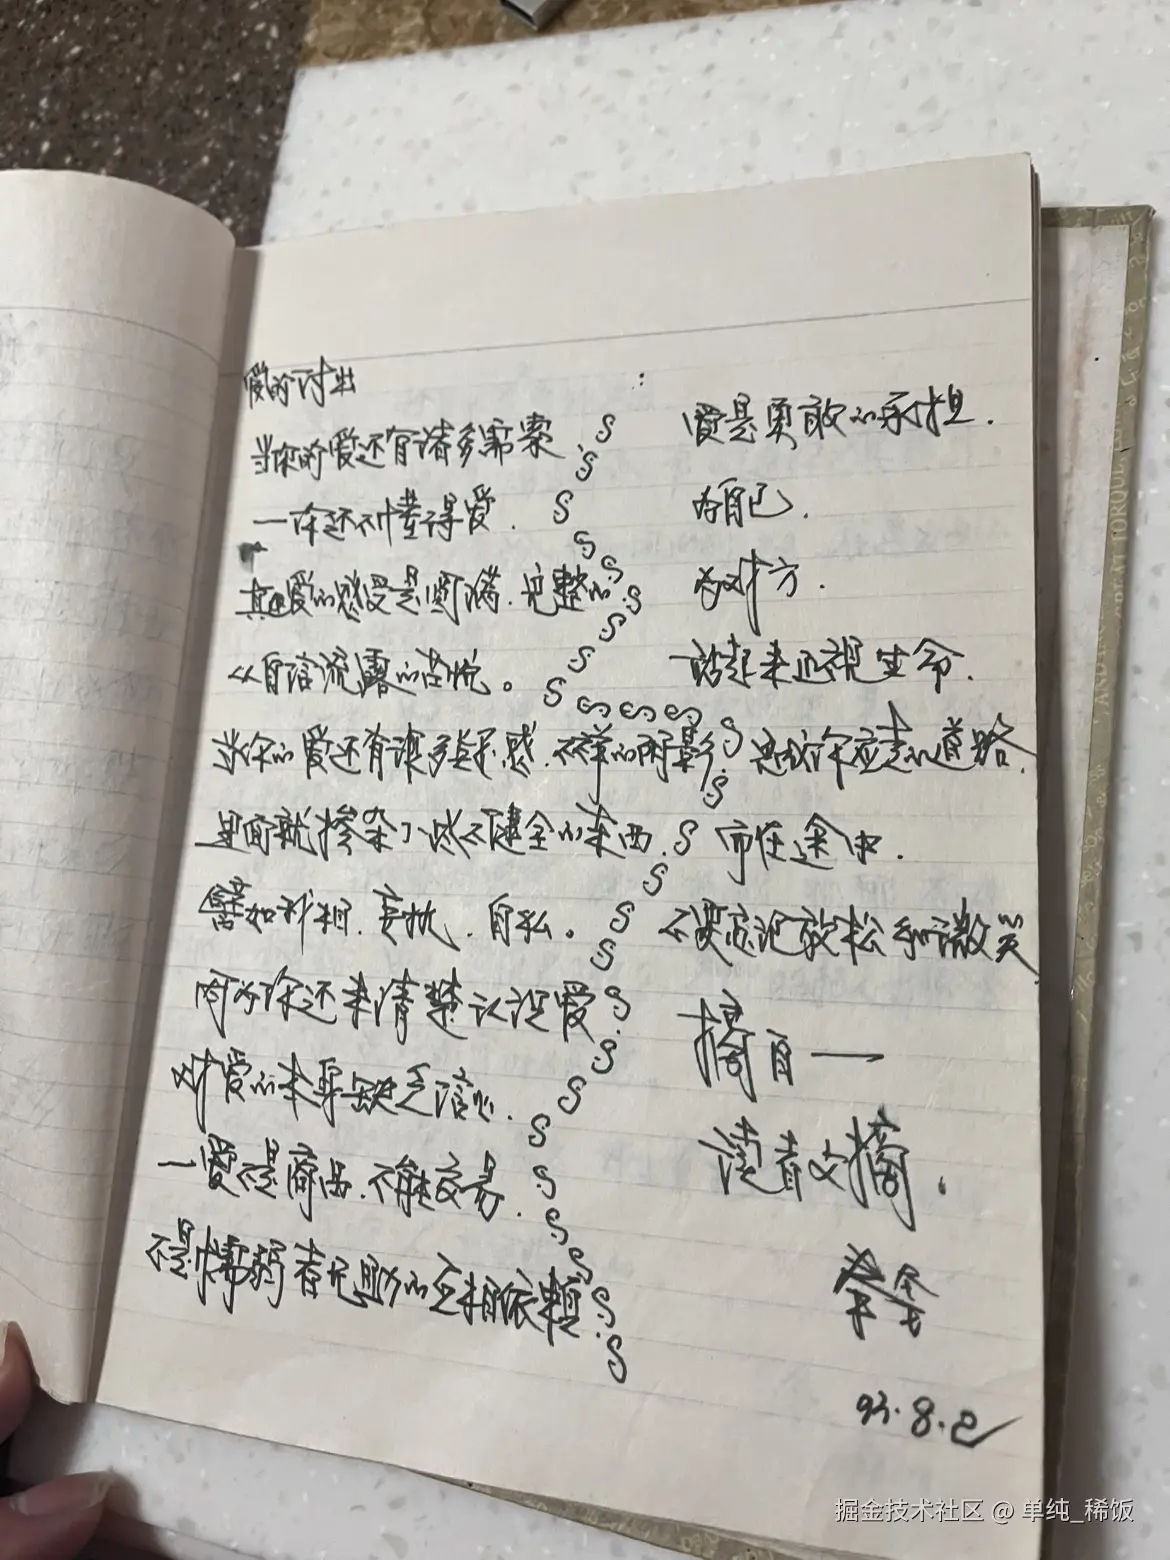 爱的付出
当你的爱还有诸多需索
一你还不懂得爱.
真爱的感受是圆满.完整的.
从自信流露的喜悦。
当你的爱还有诸多疑惑.不祥的阴影.
里面就掺杂了些不健全的东西.
譬如 自私。
因为你还未清楚认识爱
对爱的本身缺乏信心.
一爱不是商品.不能交易.
不是懦弱者无助的互相依赖.
爱是勇敢的承担.
为自己.
为对方.
一站起来正视生命.
是 你应走的道路.
而在途中.
不要忘记放松和微笑
摘自一
读者文摘.
93.8.2
掘金技术社区 @ 单纯_稀饭